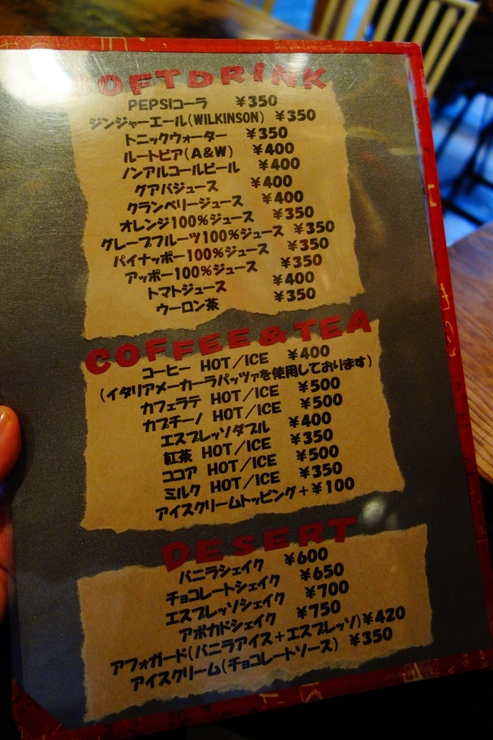 SOFTDRINK
PEPSIコーラ ¥350
ジンジャーエール(WILKINSON) ¥350
トニックウォーター ¥350
ルートビア(A&W) ¥400
ノンアルコールビール ¥400
グアバジュース ¥400
クランベリージュース ¥400
オレンジ100%ジュース ¥350
グレープフルーツ100%ジュース ¥350
パイナッポー100%ジュース ¥350
アッポー100%ジュース ¥350
トマトジュース ¥400
ウーロン茶 ¥350
COFFEE&TEA
コーヒー HOT/ICE ¥400
(イタリアメーカーラバッツァを使用しております)
カフェラテ HOT/ICE ¥500
カプチーノ HOT/ICE ¥500
エスプレッソダブル ¥400
紅茶 HOT/ICE ¥350
ココア HOT/ICE ¥500
ミルク HOT/ICE ¥350
アイスクリームトッピング+¥100
DESERT
バニラシェイク ¥600
チョコレートシェイク ¥650
エスプレッソシェイク ¥700
アボカドシェイク ¥750
アフォガード(バニラアイス+エスプレッソ)¥420
アイスクリーム(チョコレートソース) ¥350